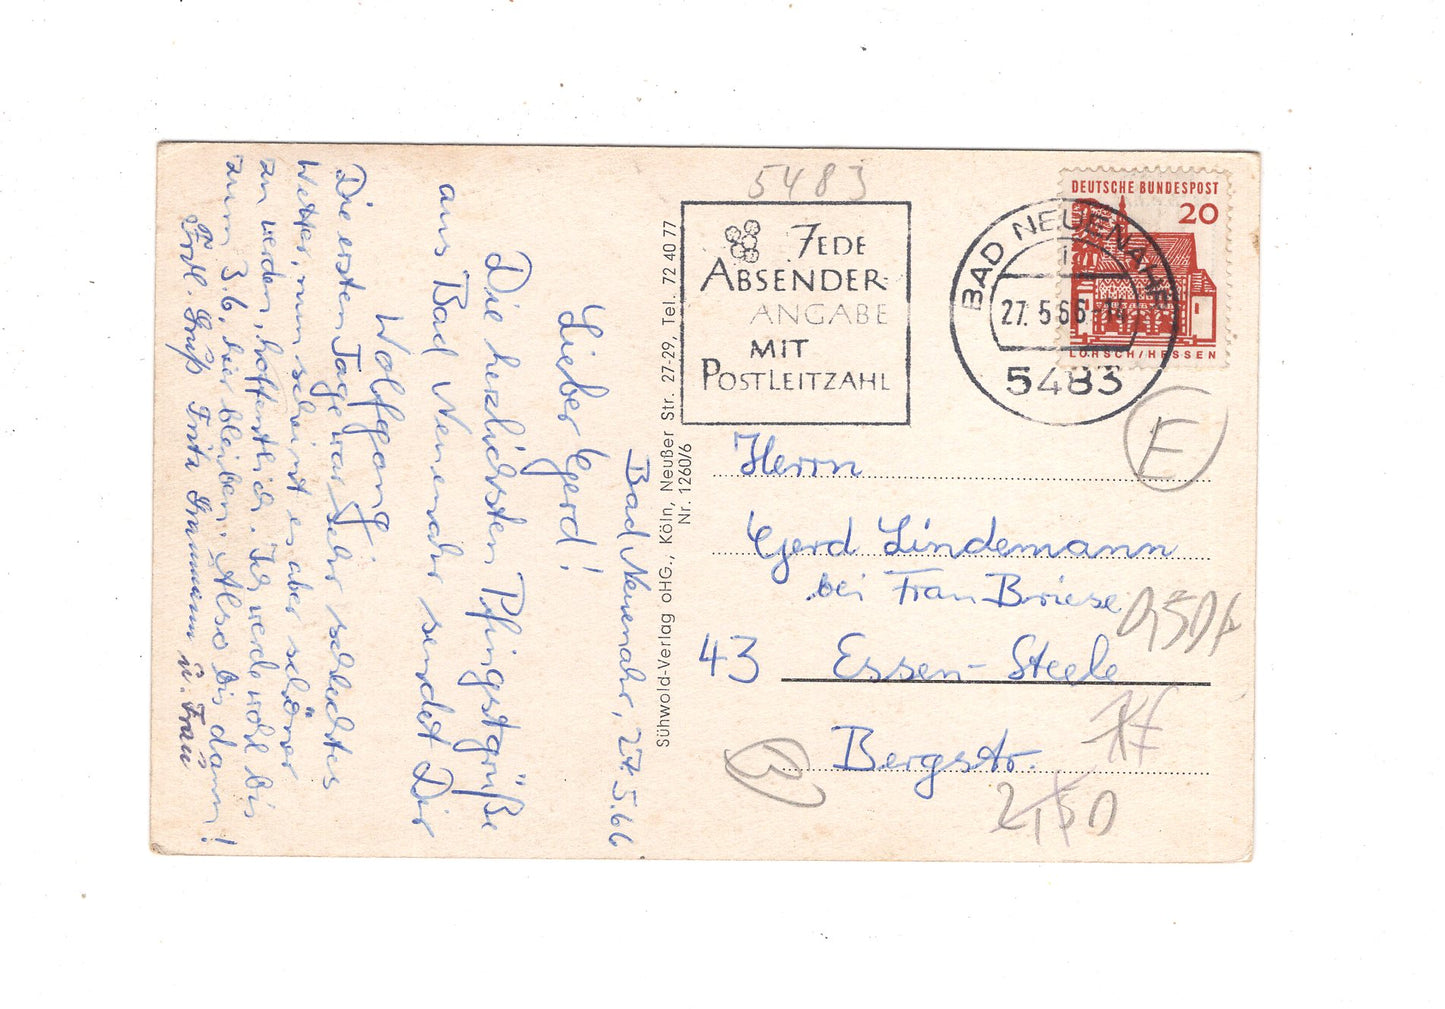 Bad Neuenahr, 27.5.66
Lieber Gerd!
Die herzlichsten Pfingstgrüße
aus Bad Neuenahr sendet Dir
Wolfgang.
Die ersten Tage war sehr schlechtes
Wetter, nun scheint es aber schöner
zu werden, hoffentlich. Ich werde wohl bis
zum 3.6. hier bleiben. Also bis dann!
Frdl. Gruß Fritz u. Frau
Sühwold-Verlag oHG., Köln, Neußer Str. 27-29, Tel. 72 40 77
Nr. 1260/6
5483
JEDE
ABSENDER-
ANGABE
MIT
POSTLEITZAHL
BAD NEUENAHR
i
27.5.66-14
5483
DEUTSCHE BUNDESPOST
20
LORSCH/HESSEN
E
Herrn
Gerd Lindemann
bei Frau Briese
43 Essen-Steele
Bergstr.
B
2,50